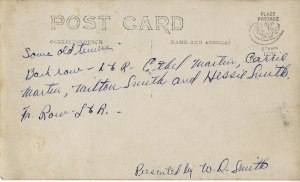 POST CARD
CORRESPONDENCE
NAME AND ADDRESS
PLACE
POSTAGE
STAMP
HERE
Some old timers
Back row - L & R - Ethel Martin, Carrie
Martin, Milton Smith and Hessie Smith.
Fr. Row - L & R -
Presented by W. D. Smith